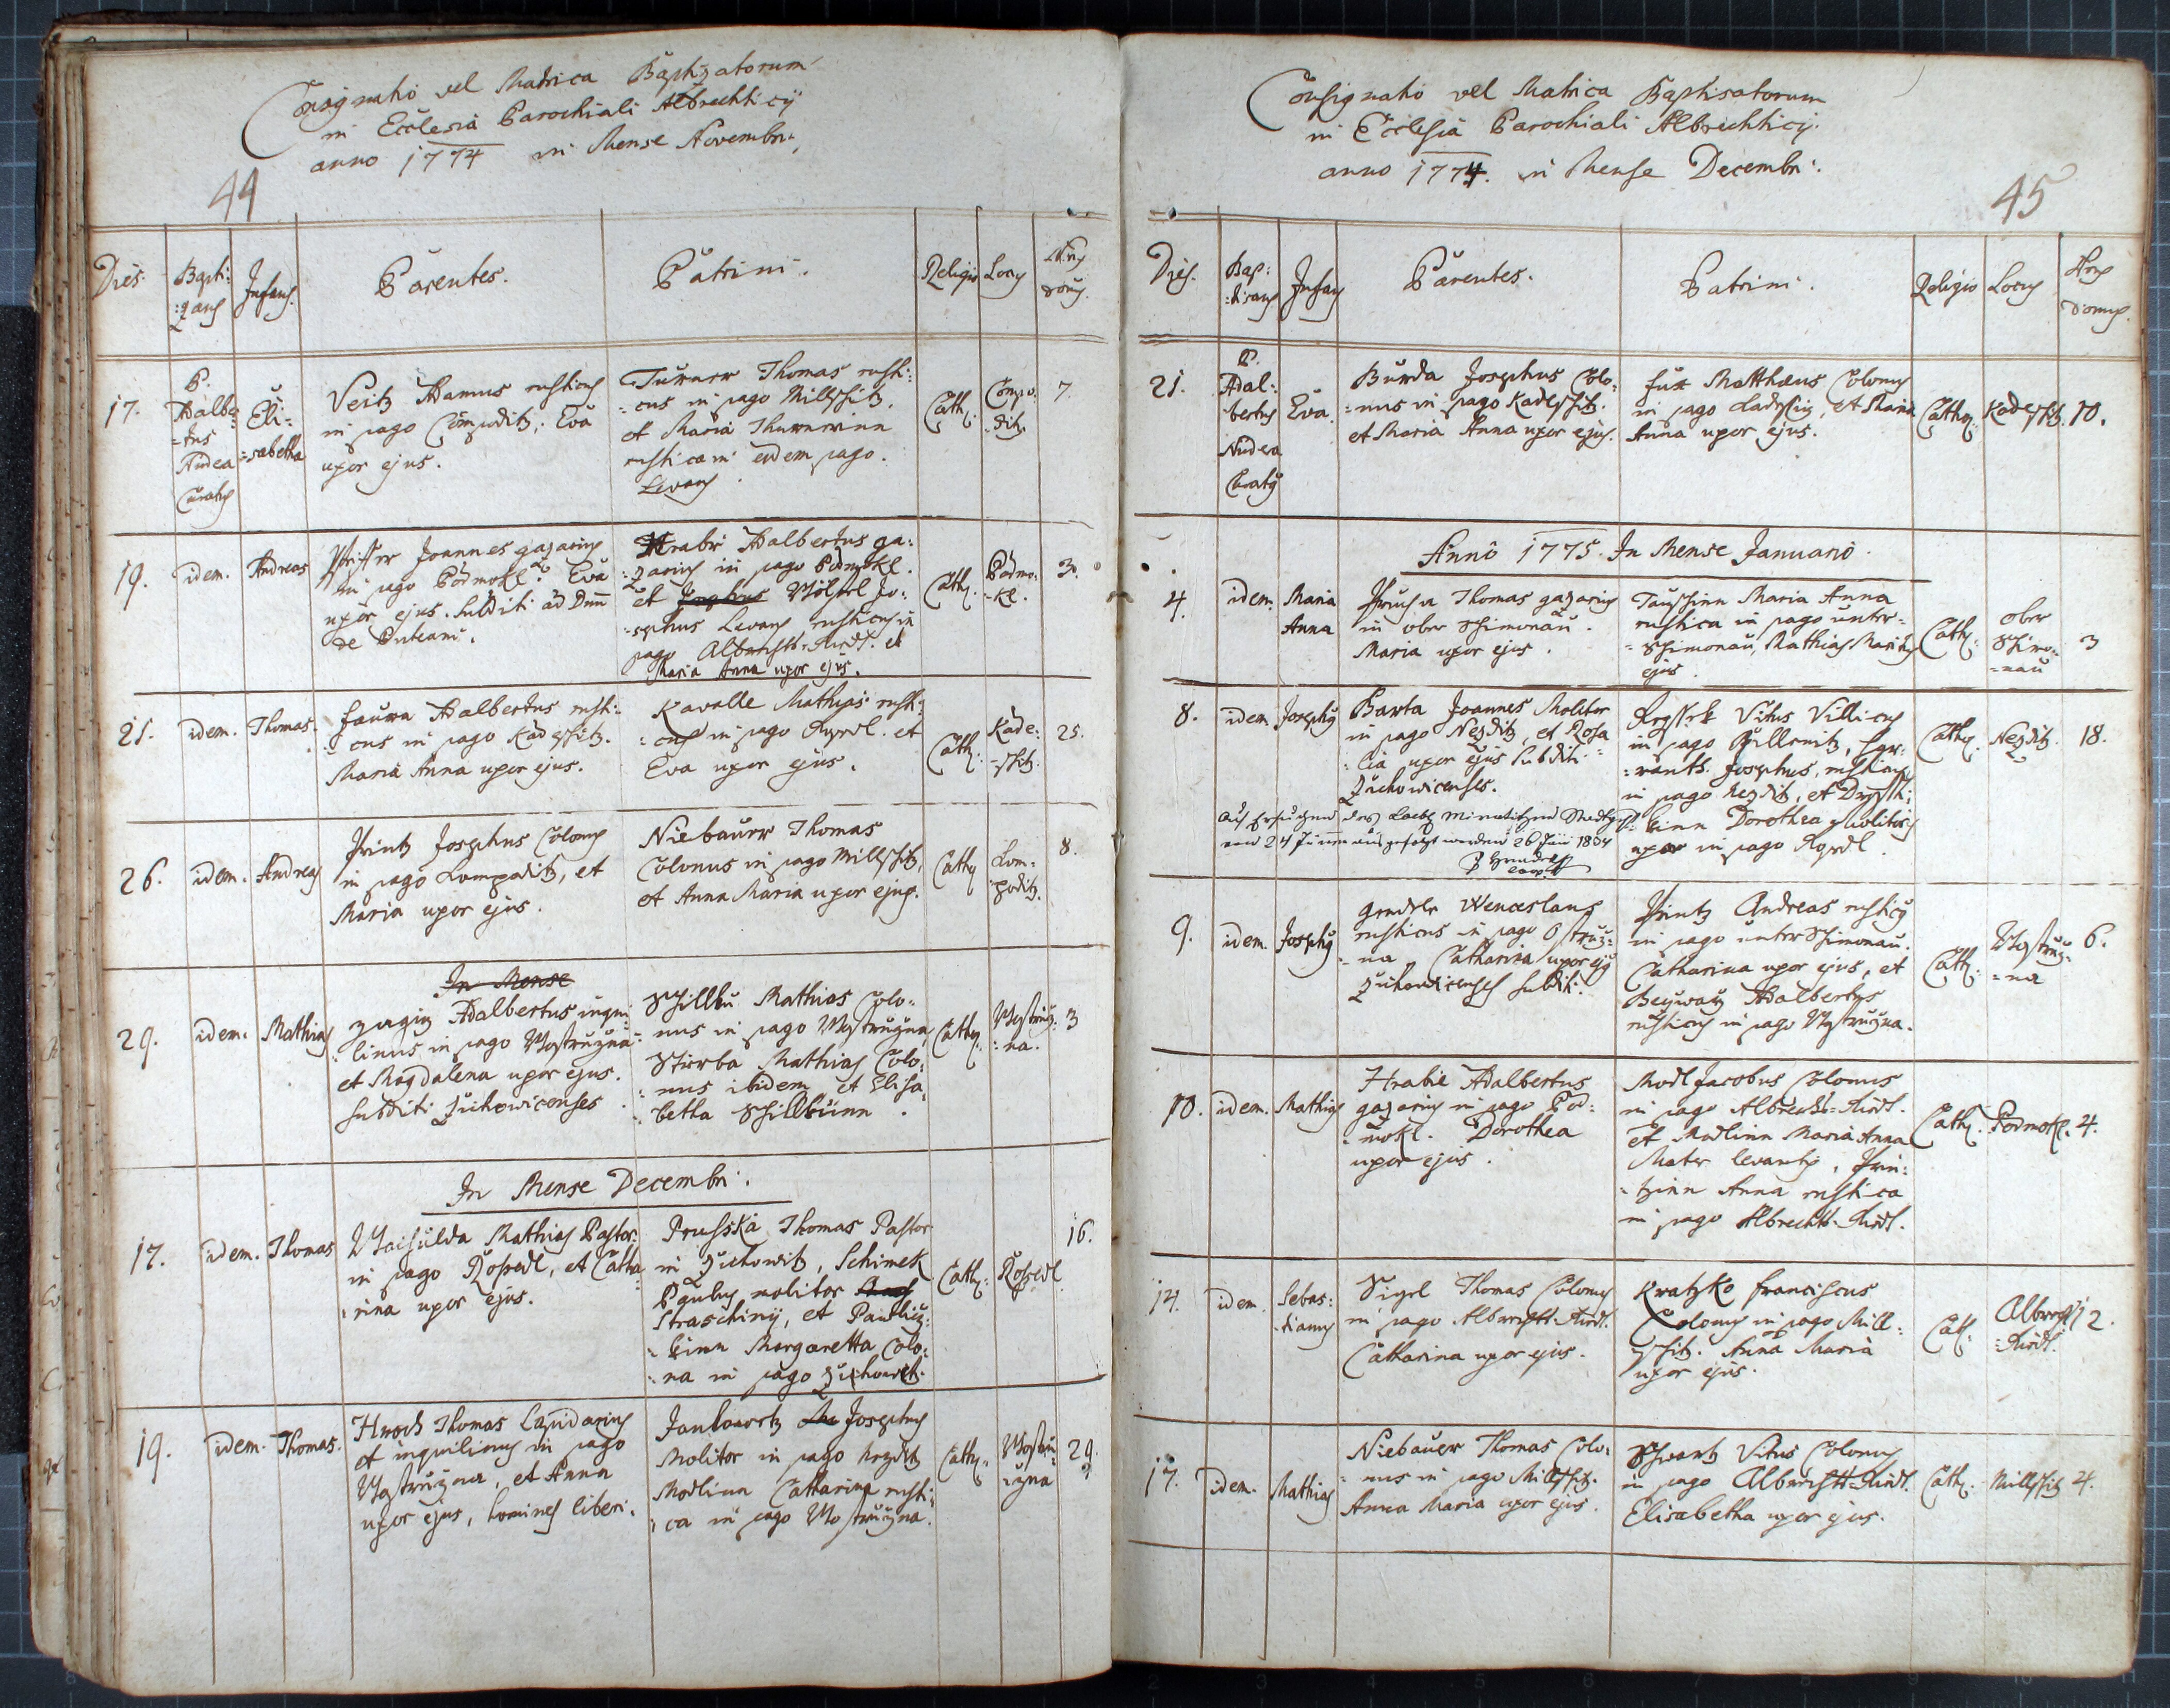 Consignatio vel Matrica Baptizatorum
in Ecclesia Parochiali Albrechticij
anno 1774 in Mense Novembri
44
Dies. Bapti: Infans. Parentes. Patrini. Religio Locus Nrus
:zans domus.
17.
P.
Adalber
=tus
Nudera
Curatus
Eli=
=sabetha
Veitz Adamus rusticus
in pago . Eva
uxor ejus.
Thomas rusti:
=cus in pago Millschitz,
et Maria
rustica in eodem pago.
Levans
Cath:
7.
19. idem. Andreas
Joannes gazarius
in pago Podmokl. Eva
uxor ejus. Subditi ad Dnum
de Puteani.
Hrabi Adalbertus ga:
:zarius in pago Podmokl.
et Jo:
=sephus Levans rusticus in
pago Albrechts-Riedl. et
Maria Anna uxor ejus.
Cath:
Podmo:
=kl.
3.
21. idem. Thomas.
Adalbertus rusti:
:cus in pago Kadeschitz.
Maria Anna uxor ejus.
Kavalle Mathias rusti:
:cus in pago . et
Eva uxor ejus.
Cath:
Kade:
=schitz.
25.
26. idem. Andreas
Printz Josephus Colonus
in pago Lompaditz, et
Maria uxor ejus.
Niebauer Thomas
Colonus in pago Millschitz,
et Anna Maria uxor ejus.
Cath:
Lom:
:poditz.
8.
29. idem. Mathias
In Mense
Adalbertus inqui
:linus in pago Wostružna
et Magdalena uxor ejus.
subditi Zichowicenses
Mathias Colo:
nus in pago Wostružna,
Mathias Colo:
:nus ibidem et Elisa,
:betha
Cath:
Wostruž:
:na.
3
In Mense Decembri.
17. idem. Thomas
Mathias Pastor
in pago Rosedl, et Catha
:rina uxor ejus.
Prusska Thomas Pastor
in Zichowitz, Schimek
Paulus molitor
Straschiny, et
Margaretta Colo:
:na in pago Zichowitz.
Cath: Rosedl
16.
19. idem. Thomas.
Hroch Thomas Lapidarius
et inquilinus in pago
Wostružna, et Anna
uxor ejus, homines liberi.
Josephus
Molitor in pago Nezditz
Modlinn Catharina rusti:
:ca in pago Wostružna.
Cath:
Wostru:
:žna
29.
Consignatio vel Matrica Baptisatorum
in Ecclesia Parochiali Albrechticij.
anno 1774. in Mense Decembri.
45
Dies. Bap: Infans Parentes. Patrini. Religio Locus Nrus
:tisans domus.
21.
P.
Adal:
bertus
Nudera
Curatus
Eva.
Burda Josephus Colo:
=nus in pago Kadeschitz.
et Maria Anna uxor ejus.
Fux Matthaeus Colonus
in pago , et Maria
Anna uxor ejus.
Cathol: Kadeschitz. 10.
Anno 1775. In Mense Januario.
4. idem. Maria
Anna
Thomas gazarius
in ober Schimonau.
Maria uxor ejus.
Maria Anna
rustica in pago unter=
=Schimonau, Mathias Maritus
ejus.
Cath:
ober
Schimo:
=nau
3
8. idem. Josephus
Barta Joannes Molitor
in pago Nezditz, et Rosa
:lia uxor ejus Subditi
Zichowicenses.
Vitus Villicus
in pago ,
Josephus, rusticus
in pago Nezditz, et
Dorothea Molitoris
uxor in pago Rosedl.
Cathol: Nezditz. 18.
Auf Ersuchen des
24 26 Juni 1804
9. idem. Josephus
Wenceslaus
rusticus in pago Ostruž:
:na, Catharina uxor ejus
Zichowicenses subditi.
Printz Andreas rusticus
in pago unter Schimonau.
Catharina uxor ejus, et
Adalbertus
rusticus in pago Wostružna.
Cath:
Wostruž:
=na
6.
10. idem. Mathias
Hrabie Adalbertus
gazarius in pago Pod:
:mokl. Dorothea
uxor ejus.
Modl Jacobus Colonus
in pago Albrechts=Riedl.
et Modlinn Maria Anna
Mater levantis, Prin:
:tzinn Anna rustica
in pago Albrechts-Riedl.
Cath: Podmokl. 4.
14. idem. Sebas:
:tianus
Sigel Thomas Colonus
in pago Albrechts-Riedl.
Catharina uxor ejus.
Kratzko Franciscus
Colonus in pago Mill:
schitz. Anna Maria
uxor ejus.
Cath:
Albrechts
:Riedl.
12.
17. idem. Mathias
Niebauer Thomas Colo:
:nus in pago Millschitz.
Anna Maria uxor ejus.
Schwartz Vitus Colonus
in pago Albrechts-Riedl.
Elisabetha uxor ejus.
Cath: Millschitz 4.